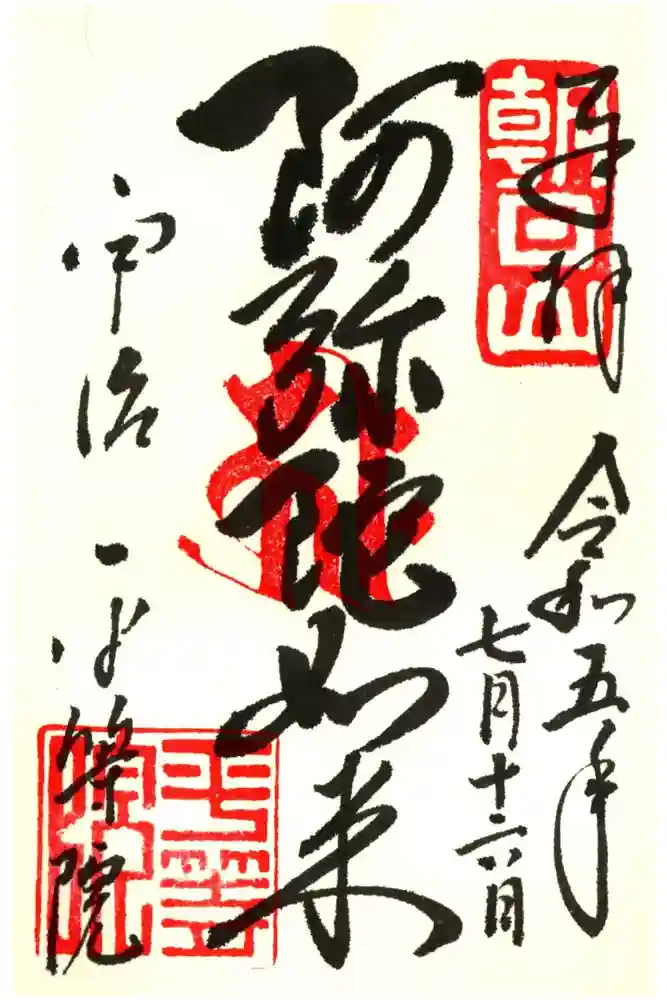 奉拝
朝日山
令和五年
七月十六日
阿弥陀如来
宇治
平等院
平等院